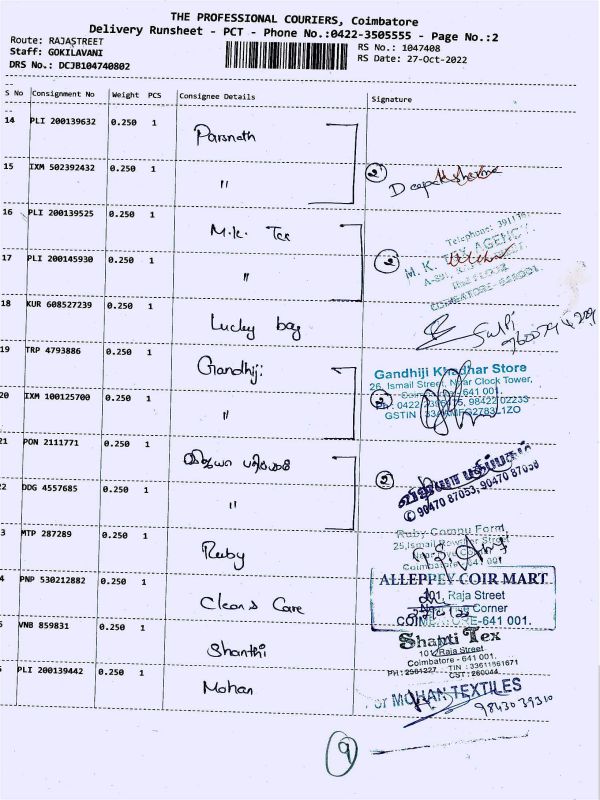 THE PROFESSIONAL COURIERS, Coimbatore
Delivery Runsheet - PCT - Phone No.:0422-3505555 - Page No.:2
Route: RAJASTREET
Staff: GOKILAVANI
DRS No.: DCJB104740802
RS No.: 1047408
RS Date: 27-Oct-2022
S No Consignment No Weight PCS Consignee Details Signature
14 PLI 200139632 0.250 1 Parsnath
15 IXM 502392432 0.250 1 " 2 Deepak Sharma
16 PLI 200139525 0.250 1 M.K. Tex
Telephone: 39111
M. K. TEX AGENCY
17 PLI 200145930 0.250 1 " 2
COIMBATORE - 641001
18 KUR 608527239 0.250 1 Lucky bag
19 TRP 4793886 0.250 1 Gandhiji
Gandhiji Khadhar Store
26, Ismail Street, Near Clock Tower,
20 IXM 100125700 0.250 1 " 2
Coimbatore-641 001.
98422 02233
GSTIN
21 PON 2111771 0.250 1 விஜயா பதிப்பகம்
2 விஜயா பதிப்பகம்
22 DDG 4557685 0.250 1 "
90470 87053, 90470 87058
3 MTP 287289 0.250 1 Ruby
Ruby Compu Form,
25, Ismail Rowther Street
Coimbatore - 641 001
4 PNP 530212882 0.250 1 Clean & Care
ALLEPPEY COIR MART
101, Raja Street
Corner
COIMBATORE-641 001.
VNB 859831 0.250 1 Shanthi
Shanti Tex
101, Raja Street
Coimbatore - 641 001.
PH: 2561227 TIN : 33611561671
CST : 260044
PLI 200139442 0.250 1 Mohan
For MOHAN TEXTILES
98430 39310
9